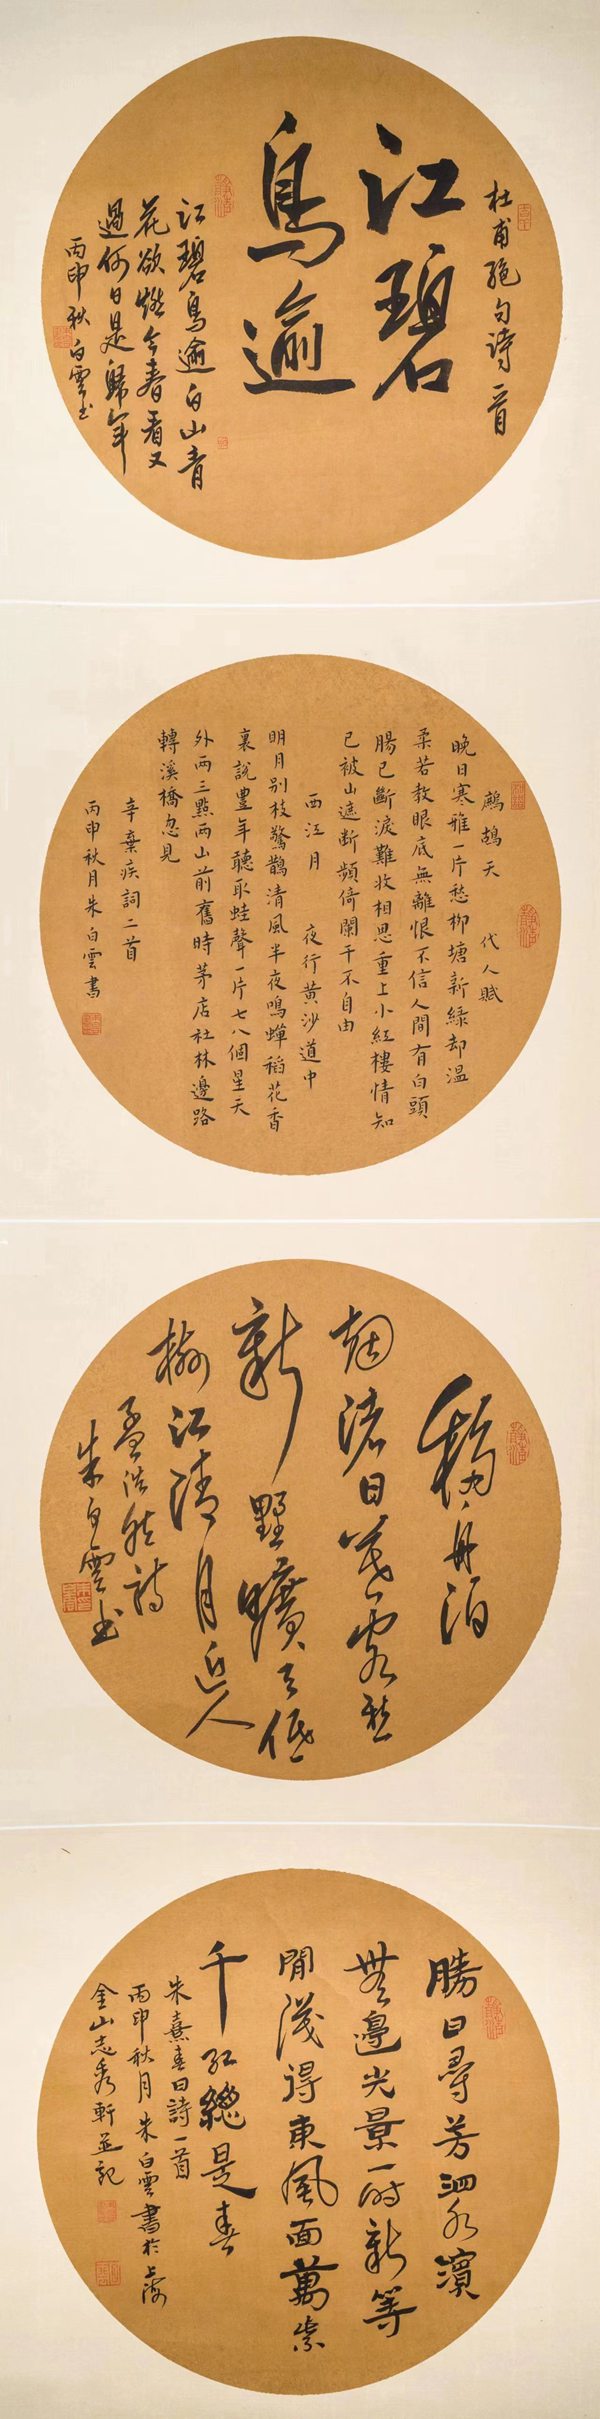 杜甫絕句詩一首
江碧
鳥逾
江碧鳥逾白山青
花欲燃今春看又
過何日是歸年
丙申秋白雲书
鷓鴣天 代人賦
晚日寒雅一片愁柳塘新綠却温
柔若教眼底無離恨不信人間有白頭
腸已斷淚難收相思重上小紅樓情知
已被山遮断頻倚闌干不自由
西江月 夜行黄沙道中
明月别枝驚鵲清風半夜鳴蟬稻花香
裏說豊年聽取蛙聲一片七八個星天
外两三點两山前舊時茅店社林邊路
轉溪橋忽見
辛棄疾詞二首
丙申秋月朱白雲書
移舟泊
烟渚日暮客愁
新野曠天低
樹江清月近人
孟浩然詩
朱白雲书
勝日尋芳泗水濱
無邊光景一时新等
閒識得東風面萬紫
千紅總是春
朱熹春日詩一首
丙申秋月朱白雲書於上海
金山志秀軒並記